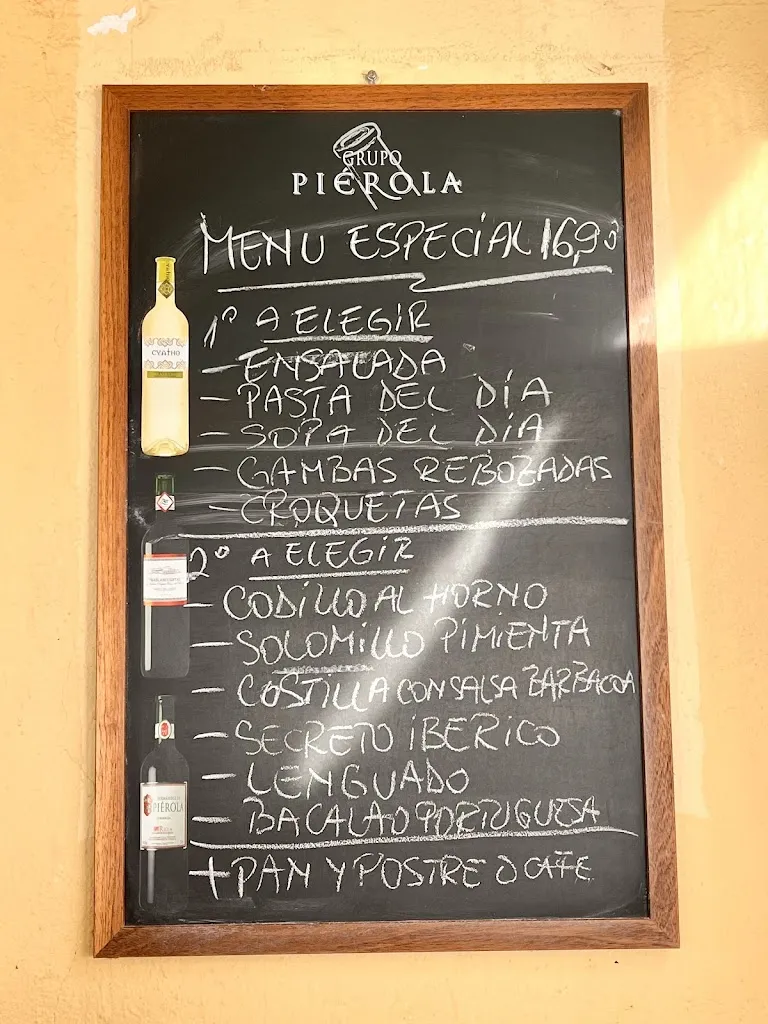 GRUPO
PIÉROLA
MENU ESPECIAL 16,90
1º A ELEGIR
- ENSALADA
- PASTA DEL DÍA
- SOPA DEL DÍA
- GAMBAS REBOZADAS
- CROQUETAS
2º A ELEGIR
- CODILLO AL HORNO
- SOLOMILLO PIMIENTA
- COSTILLA CON SALSA BARBACOA
- SECRETO IBERICO
- LENGUADO
- BACALAO PORTUGUESA
+ PAN Y POSTRE O CAFE
CYATHO
PIÉROLA